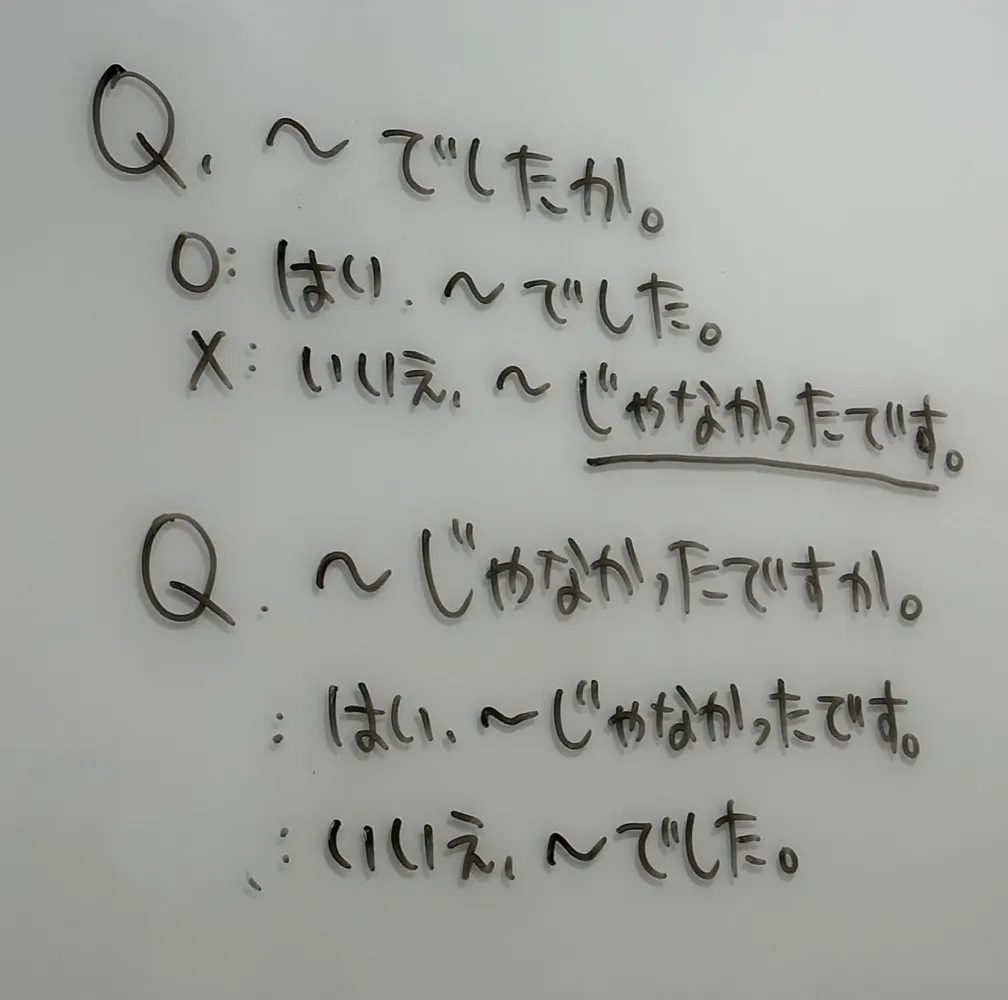 Q. ～でしたか。
O: はい、～でした。
X: いいえ、～じゃなかったです。
Q. ～じゃなかったですか。
: はい、～じゃなかったです。
: いいえ、～でした。